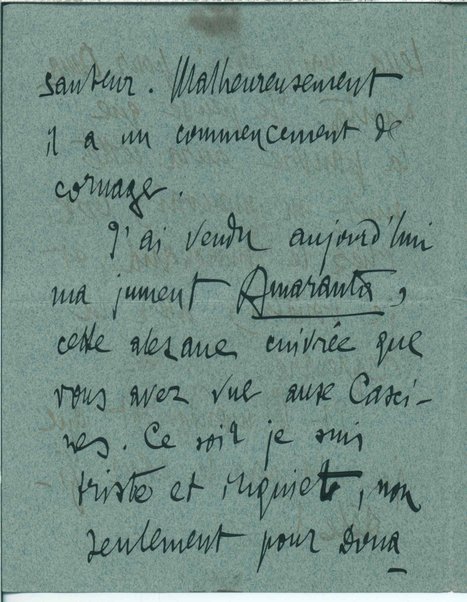 sauteur. Malheureusement
il a un commencement de
cornage.
J'ai vendu aujourd'hui
ma jument Amaranta,
cette alezane cuivrée que
vous avez vue aux Casci-
nes. Ce soir je suis
triste et inquiet, non
seulement pour Dona